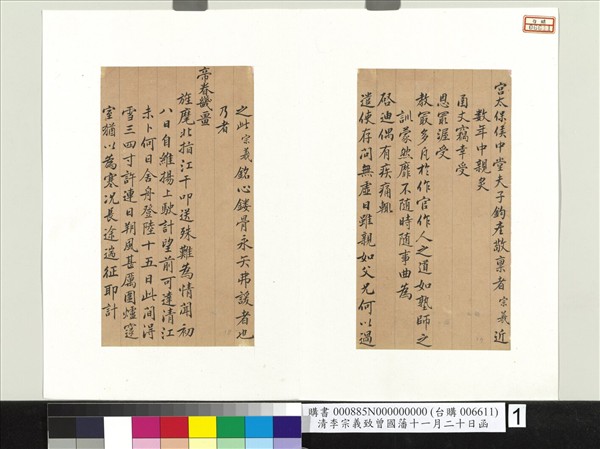 宮太保侯中堂夫子鈞座敬稟者宗羲近
數年中親炙
函丈竊幸受
恩罷渥受
教最多凡於作官作人之道如塾師之
訓蒙然靡不隨時隨事曲為
啓迪偶有疾痛輒
遣使存問無虛日雖親如父兄何以過
之此宗羲銘心鏤骨永矢弗諼者也
乃者
帝眷畿畺
旌麾北指江干叩送殊難為情聞初
八日自維揚上駛計望前可達清江
未卜何日舍舟登陸十五日此間得
雪三四寸許連日朔風甚厲圍爐窒
室猶以為寒況長途遄征耶計
台購
006611
購書 000885N000000000 (台購 006611)
清李宗羲致曾國藩十一月二十日函
1